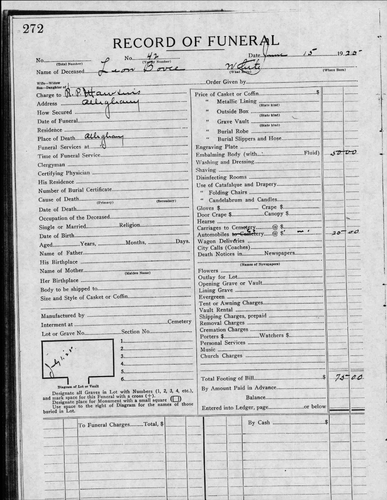 272
RECORD OF FUNERAL
No. 42 Date June 15 1925
(Total Number) (Yearly Number)
Name of Deceased Leon White
(What Race) (Where Born)
Wife—Widow
Son—Daughter of Order Given by
Charge to Hawkins
Address Alleghany
How Secured
Date of Funeral
Residence
Place of Death Alleghany
Funeral Services at
Time of Funeral Service
Clergyman
Certifying Physician
His Residence
Number of Burial Certificate
Cause of Death
(Primary)
Date of Death
Occupation of the Deceased
Single or Married Religion
Date of Birth
Aged Years, Months, Days.
Name of Father
His Birthplace
Name of Mother
(Maiden Name)
Her Birthplace
Body to be shipped to
Size and Style of Casket or Coffin
Manufactured by
Interment at Cemetery
Lot or Grave No. Section No.
1.
2.
3.
4.
5.
6.
Diagram of Lot or Vault
Designate all Graves in Lot with Numbers (1, 2, 3, 4, etc.),
and mark space for this Funeral with a cross (+).
Designate place for Monument with a small square
Use space to the right of Diagram for the names of those
buried in Lot.
Price of Casket or Coffin
" Metallic Lining
(State kind)
" Outside Box
(State kind)
" Grave Vault
(State kind)
" Burial Robe
" Burial Slippers and Hose
Engraving Plate
Embalming Body (with Fluid) 50 00
Washing and Dressing
Shaving
Disinfecting Rooms
Use of Catafalque and Drapery
" Folding Chairs
" Candelabrum and Candles
Gloves $ Crape $
Door Crape $ Canopy $
Hearse
Carriages to Cemetery @ $
Automobiles to Cemetery @ $ 25 00
Wagon Deliveries
City Calls (Coaches)
Death Notices in Newspapers
(Names of Newspapers)
Flowers
Outlay for Lot
Opening Grave or Vault
Lining Grave
Evergreen
Tent or Awning Charges
Vault Rental
Shipping Charges, prepaid
Removal Charges
Cremation Charges
Porters $ Watchers $
Personal Services
Music
Church Charges
Total Footing of Bill $ 75 00
By Amount Paid in Advance
Balance
Entered into Ledger, page or below
To Funeral Charges Total, $ By Cash $